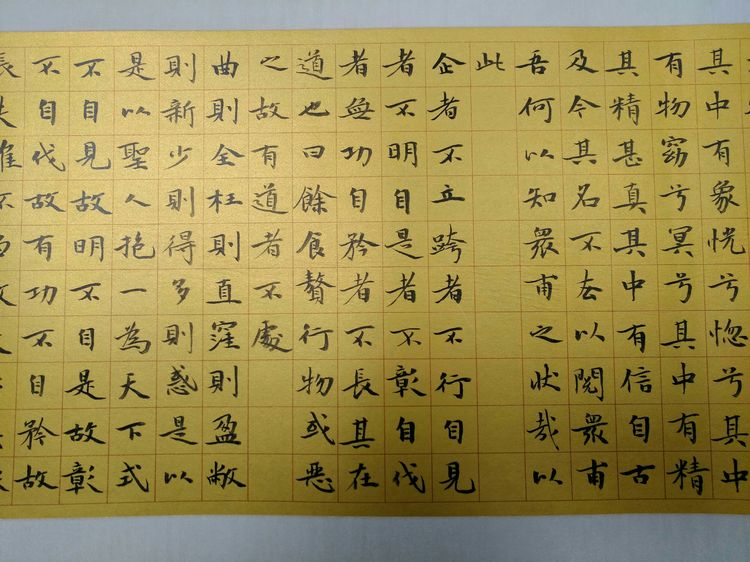 其中有象恍兮惚兮其中
有物窈兮冥兮其中有精
其精甚真其中有信自古
及今其名不去以閱衆甫
吾何以知衆甫之狀哉以
此
企者不立跨者不行自見
者不明自是者不彰自伐
者無功自矜者不長其在
道也曰餘食贅行物或惡
之故有道者不處
曲則全枉則直窪則盈敝
則新少則得多則惑是以
是以聖人抱一為天下式
不自見故明不自是故彰
不自伐故有功不自矜故
長